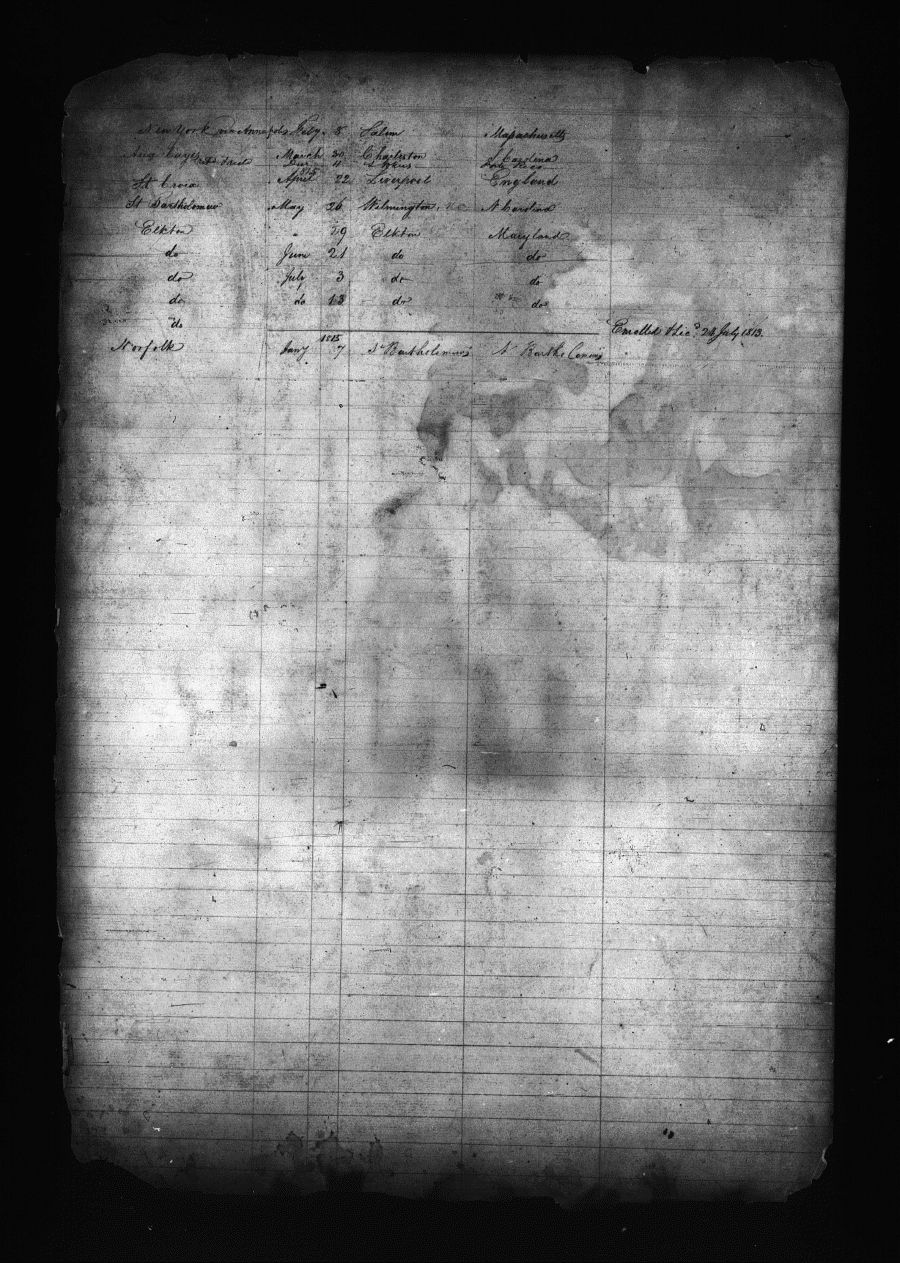 New York via Annapolis Feby. 8 Salem Massachusetts
March 30 Charleston S Carolina
11 Porto Rico
St Croix April 22 Liverpool England
St Bartholomew May 26 Wilmington, NC N Carolina
Elkton " 29 Elkton Maryland
do June 21 do do
do July 3 do do
do do 13 do do
do Enrolled & Lic.d 24 July 1813.
1815
Norfolk Jany 7 St Bartholomews St Barths